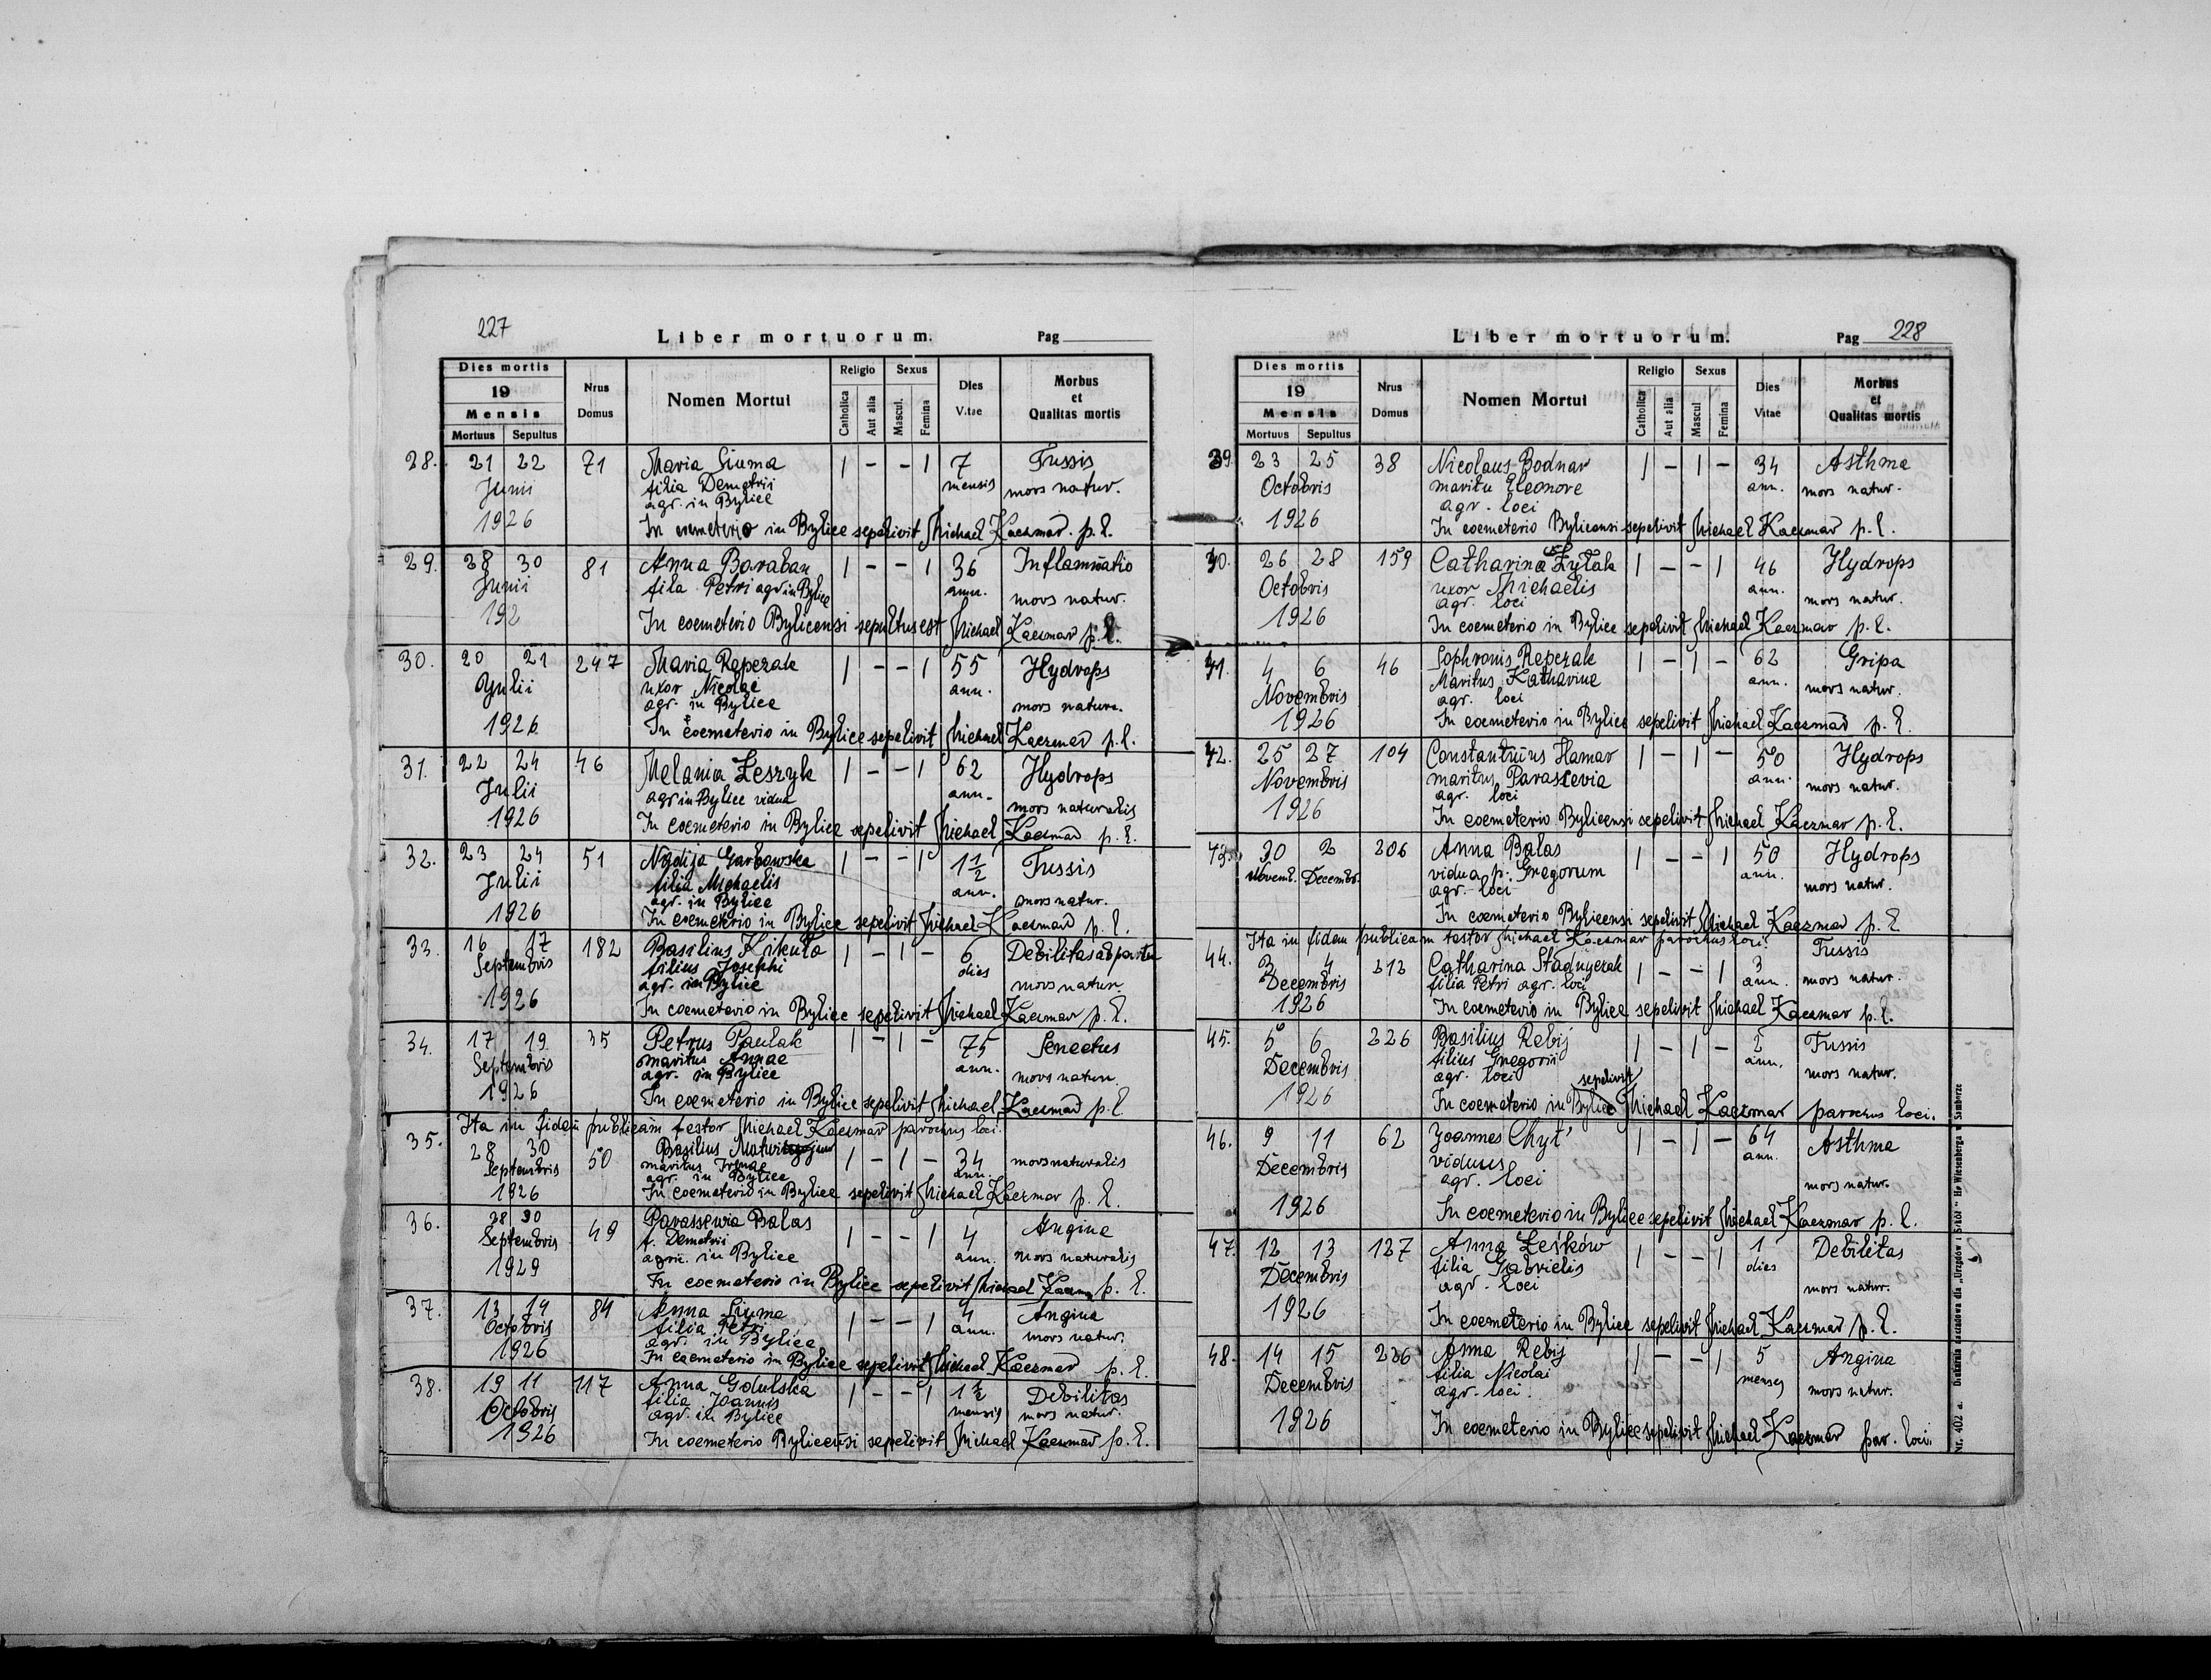 227
Liber mortuorum.
Pag
Dies mortis
19
Mensis
Mortuus Sepultus
Nrus Domus
Nomen Mortui
Religio
Catholica Aut alia
Sexus
Mascul. Femina
Dies Vitae
Morbus et Qualitas mortis
28. 21 22 71 Maria Siuma 1 - - 1 7 Tussis
Junii filia Demetrii mensis mors natur.
agr. in Bylice
1926 In cemeterio in Bylice sepelivit Michael Kaczmar. p. l.
29. 28 30 81 Anna Baraban 1 - - 1 36 Inflammatio
Junii fila Petri agr in Bylice ann. mors natur.
192 In coemeterio Bylicensi sepultus est Michael Kaczmar p. l.
30. 20 21 247 Maria Repczak 1 - - 1 55 Hydrops
Julii uxor Nicolae ann. mors natura.
agr. in Bylice
1926 In coemeterio in Bylice sepelivit Michael Kaczmar p. l.
31. 22 24 46 Melania Leszyk 1 - - 1 62 Hydrops
Julii agr in Bylice vidua ann. mors naturalis
1926 In coemeterio in Bylice sepelivit Michael Kaczmar p. l.
32. 23 24 51 Nadija Garbowska 1 - - 1 1 1/2 Tussis
Julii filia Michaelis ann. mors natur.
agr. in Bylice
1926 In coemeterio in Bylice sepelivit Michael Kaczmar p. l.
33. 16 17 182 Basilius Kikuła 1 - 1 - 6 Debilitas ab partu
Septembris filius Josephi dies mors natur.
agr. in Bylice
1926 In coemeterio in Bylice sepelivit Michael Kaczmar p. l.
34. 17 19 35 Petrus Pawlak 1 - 1 - 75 Senectus
Septembris maritus Annae ann. mors natur.
agr. in Bylice
1926 In coemeterio in Bylice sepelivit Michael Kaczmar p. l.
Ita in fidem publicam testor Michael Kaczmar parochus loci.
35. 28 30 50 Basilius 1 - 1 - 34 mors naturalis
Septembris maritus Irenae ann.
agr. in Bylice
1926 In coemeterio in Bylice sepelivit Michael Kaczmar p. l.
36. 28 30 49 Parassewia Balas 1 - - 1 4 Angina
Septembris f. Demetrii ann. mors naturalis
agric. in Bylice
1929 In coemeterio in Bylice sepelivit Michael Kaczm p. l.
37. 13 14 84 Anna Siuma 1 - - 1 4 Angina
Octobris filia Petri ann. mors natur.
agr. in Bylice
1926 In coemeterio in Bylice sepelivit Michael Kaczmar p. l.
38. 19 11 117 Anna Gdulska 1 - - 1 1 1/2 Debilitas
Octobris filia Joannis mensis mors natur.
agr. in Bylice
1926 In coemeterio Bylicensi sepelivit Michael Kaczmar p. l.
Liber mortuorum.
Pag 228
Dies mortis
19
Mensis
Mortuus Sepultus
Nrus Domus
Nomen Mortui
Religio
Catholica Aut alia
Sexus
Mascul Femina
Dies Vitae
Morbus et Qualitas mortis
39. 23 25 38 Nicolaus Bodnar 1 - 1 - 34 Asthma
Octobris maritu Eleonore ann. mors natur.
agr. loci
1926 In coemeterio Bylicensi sepelivit Michael Kaczmar p. l.
40. 26 28 159 Catharina Żyłak 1 - - 1 46 Hydrops
Octobris uxor Michaelis ann. mors natur.
agr. loci
1926 In coemeterio in Bylice sepelivit Michael Kaczmar p. l.
41. 4 6 46 Sophronis Repczak 1 - 1 - 62 Gripa
Novembris Maritus Katharine ann. mors natur.
agr. loci
1926 In coemeterio in Bylice sepelivit Michael Kaczmar p. l.
42. 25 27 104 Constantinus Hamar 1 - 1 - 50 Hydrops
Novembris maritus Parascevia ann. mors natur.
agr. loci
1926 In coemeterio Bylicensi sepelivit Michael Kaczmar p. l.
43. 30 2 206 Anna Balas 1 - - 1 50 Hydrops
Novemb. Decembr. vidua p. Gregorum ann. mors natur.
agr. loci
In coemeterio Bylicensi sepelivit Michael Kaczmar p. l.
Ita in fidem publicam testor Michael Kaczmar parochus loci.
44. 3 4 212 Catharina Stadnyczak 1 - - 1 3 Tussis
Decembris filia Petri agr. loci ann. mors natur.
1926 In coemeterio in Bylice sepelivit Michael Kaczmar p. l.
45. 5 6 226 Basilius Rebij 1 - 1 - 2 Tussis
Decembris filius Gregorii ann. mors natur.
agr. loci
sepelivit
1926 In coemeterio in Bylice Michael Kaczmar parochus loci.
46. 9 11 62 Joannes Chyt' 1 - 1 - 64 Asthma
Decembris viduus ann.
agr. loci mors natur.
1926 In coemeterio in Bylice sepelivit Michael Kaczmar p. l.
47. 12 13 127 Anna Leśków 1 - - 1 1 Debilitas
Decembris filia Gabrielis dies
agr. loci mors natur.
1926 In coemeterio in Bylice sepelivit Michael Kaczmar p. l.
48. 14 15 226 Anna Rebij 1 - - 1 5 Angina
Decembris filia Nicolai menses mors natur.
agr. loci.
1926 In coemeterio in Bylice sepelivit Michael Kaczmar par. loci.
Nr. 402 a. Drukarnia nakładowa dla „Urzędów i Szkół" H. Wiesenberga w Samborze